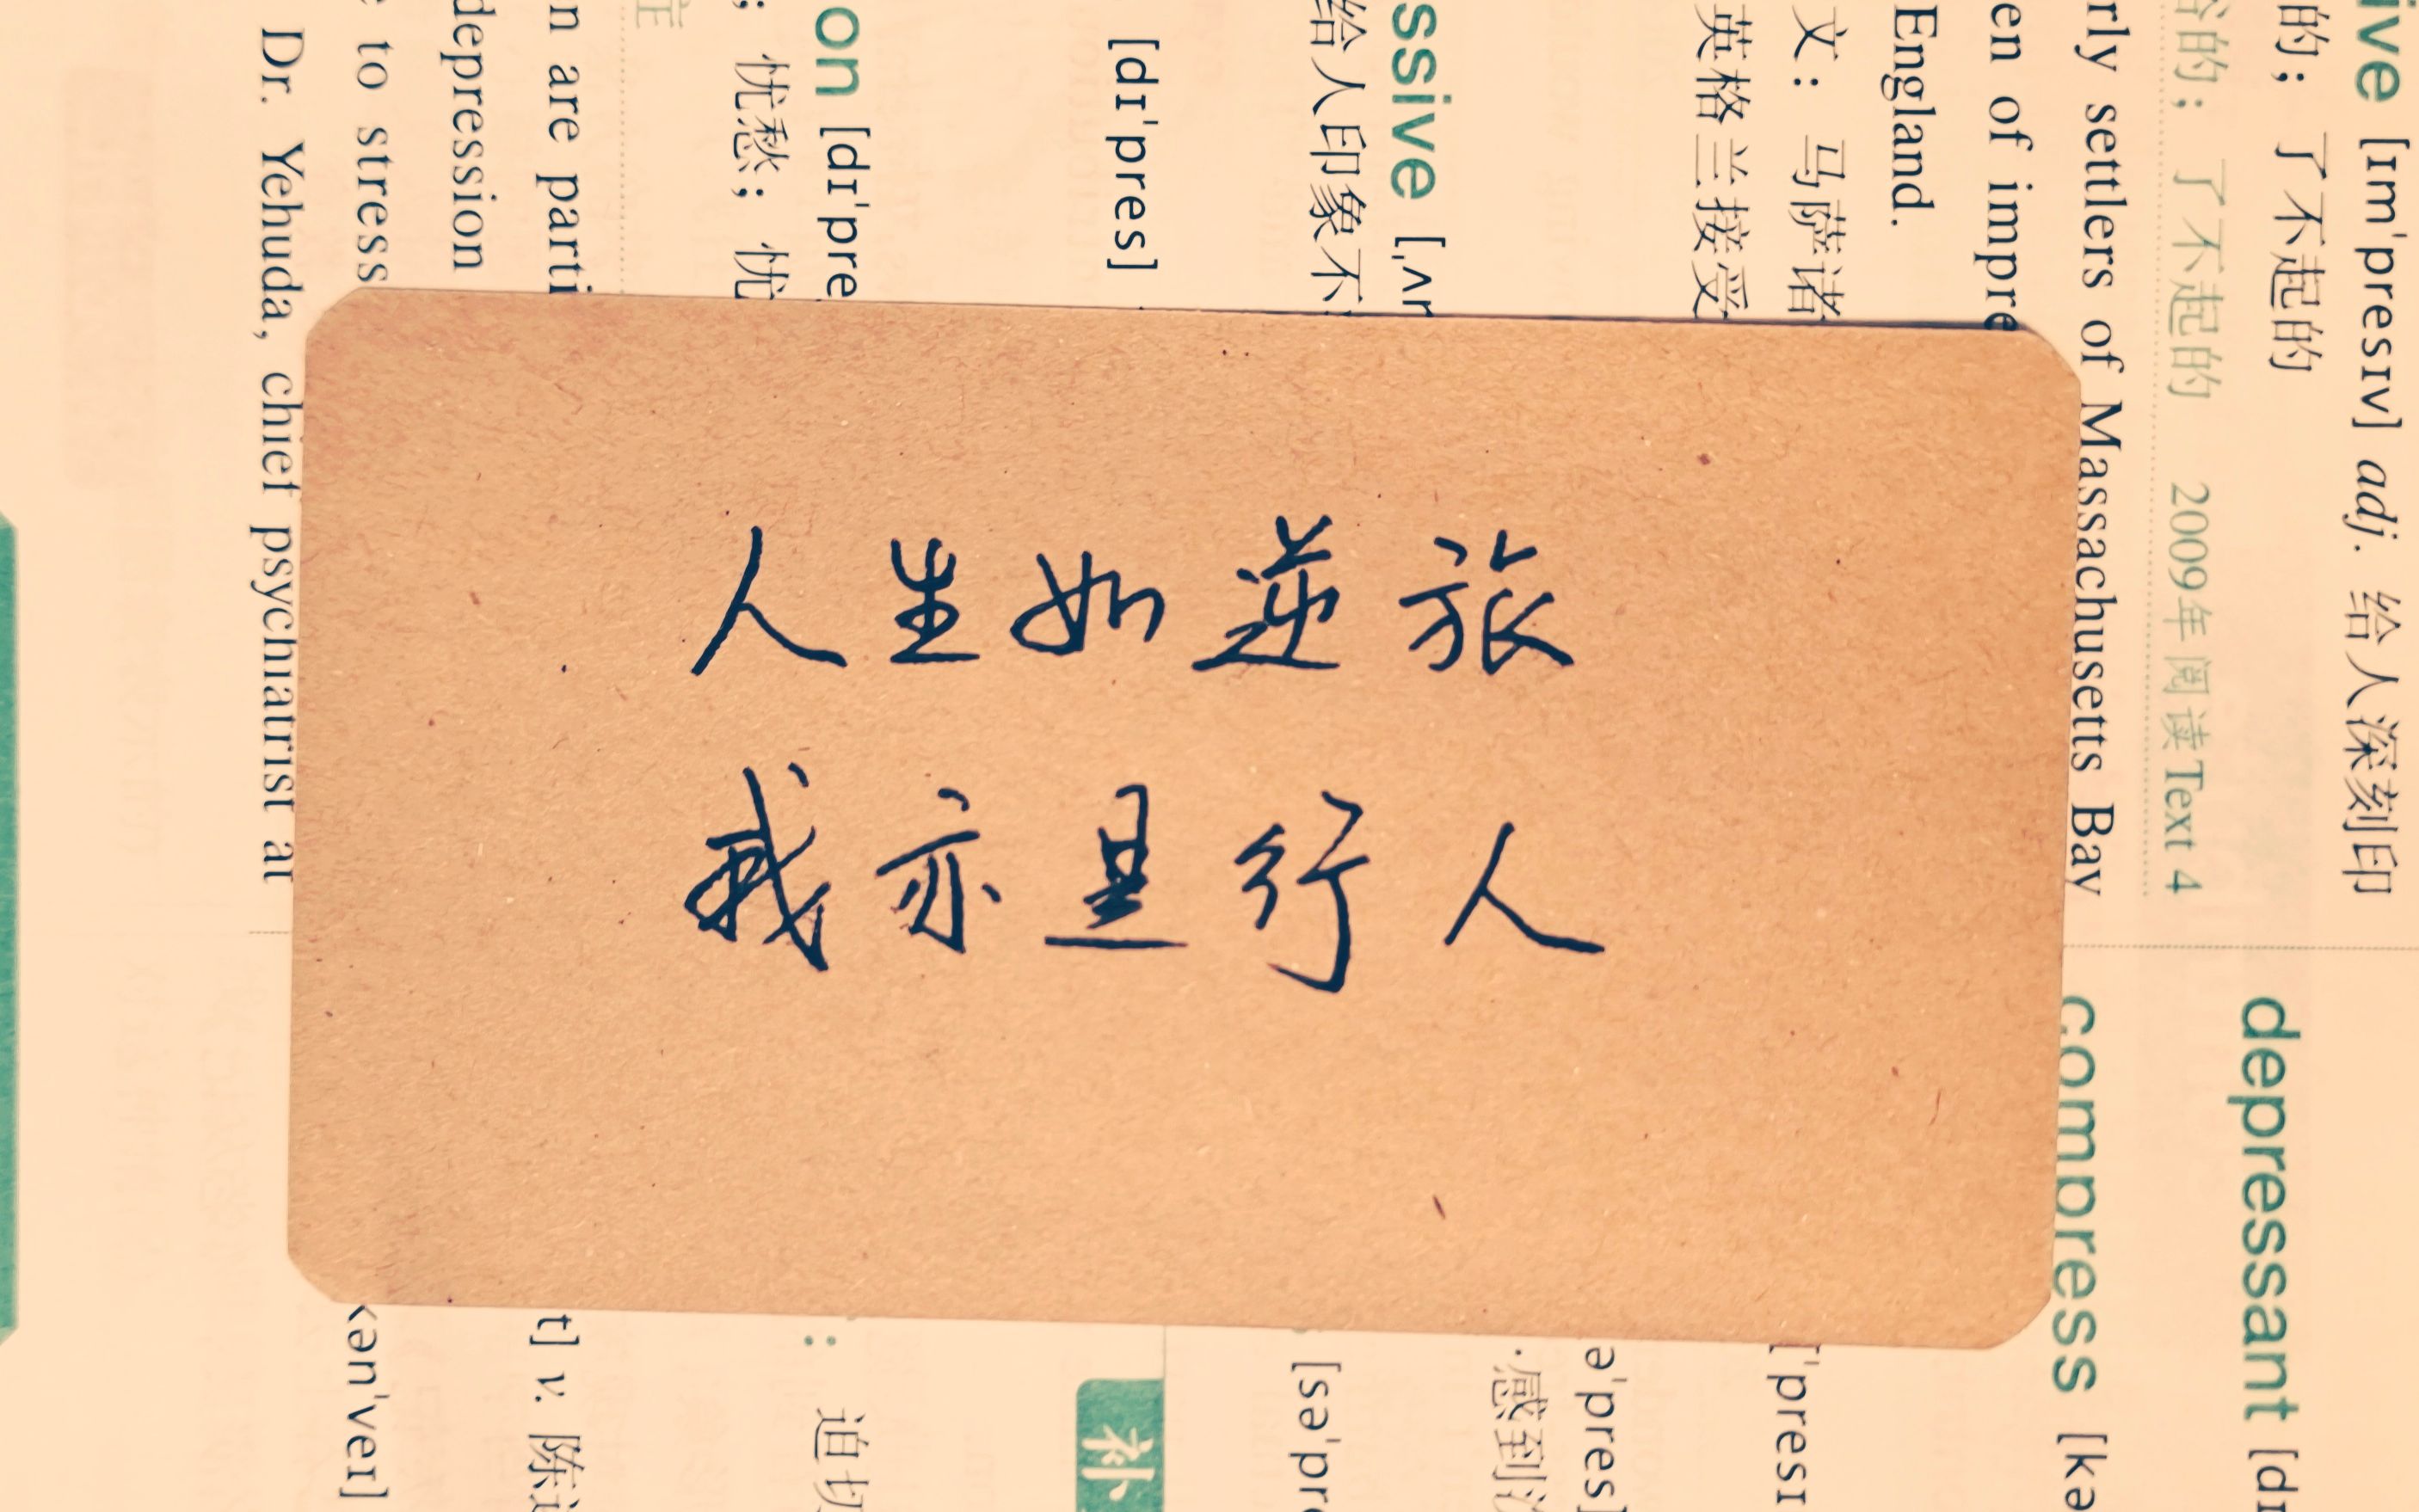 人生如逆旅
我亦是行人
ive [ɪm'presɪv] adj. 给人深刻印
的；了不起的
的；了不起的 2009年阅读Text 4
rly settlers of Massachusetts Bay
en of impre
England.
文：马萨诸
英格兰接受
ssive [ˌʌn
给人印象不
[dɪ'pres]
on [dɪ'pre
；忧愁；忧
n are parti
depression
to stress
Dr. Yehuda, chief psychiatrist at
depressant [dɪ
compress [kə
['presɪ
ə'pres]
感到
[sə'pre
补
迫切
t] v. 陈
kən'veɪ]